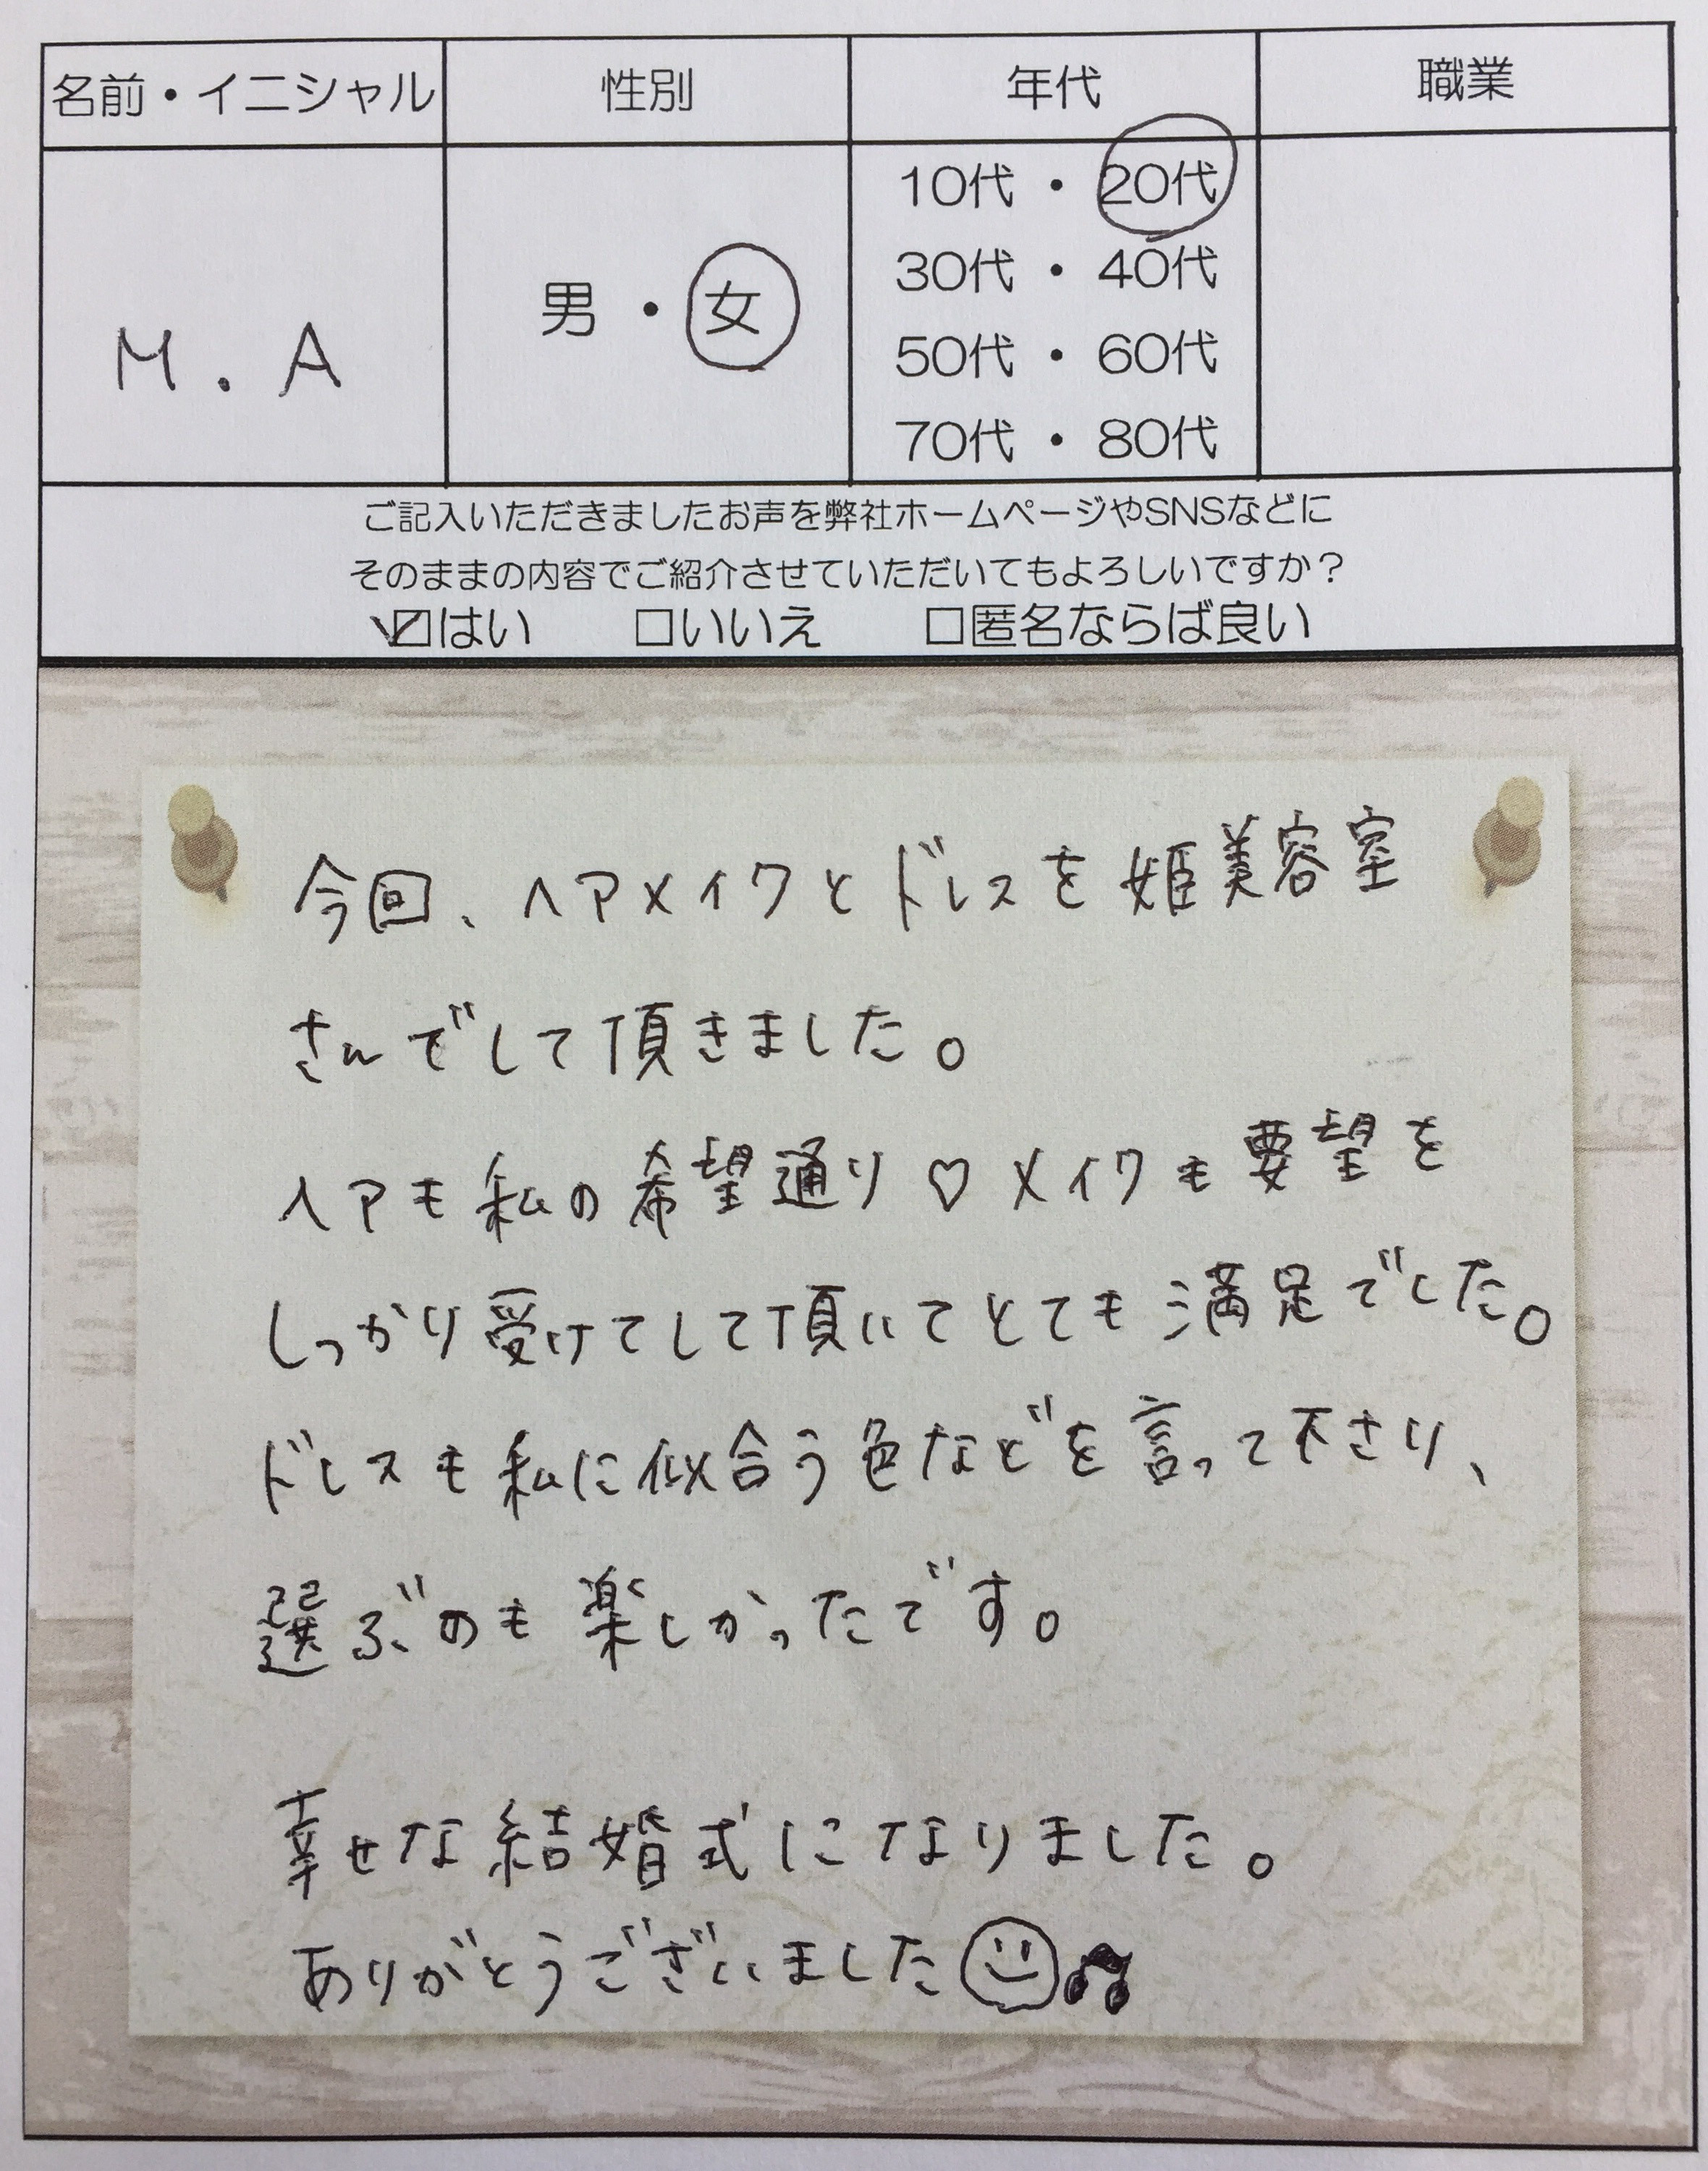 名前・イニシャル 性別 年代 職業
M.A 男・女
10代・20代
30代・40代
50代・60代
70代・80代
ご記入いただきましたお声を弊社ホームページやSNSなどに
そのままの内容でご紹介させていただいてもよろしいですか?
☑はい □いいえ □匿名ならば良い
今回、ヘアメイクとドレスを姫美容室
さんでして頂きました。
ヘアも私の希望通り♡メイクも要望を
しっかり受けてして頂いてとても満足でした。
ドレスも私に似合う色などを言って下さり、
選ぶのも楽しかったです。
幸せな結婚式になりました。
ありがとうございました☺♫